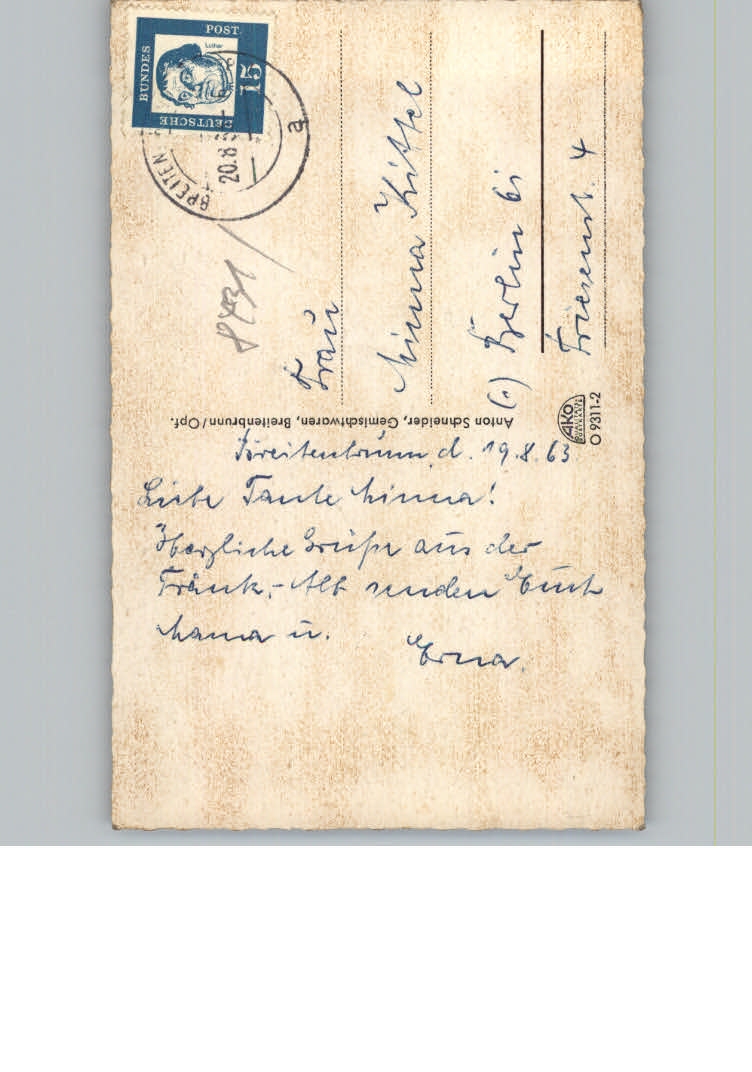 DEUTSCHE
BUNDES
POST
Luther
15
BREITEN
20.8
a
Frau
Minna Kittel
(1) Berlin 61
Friesenstr. 4
Anton Schneider, Gemischtwaren, Breitenbrunn/Opf.
AKO
O 9311-2
Breitenbrunn, d. 19.8.63
Liebe Tante Minna!
Herzliche Grüße aus der
Fränk.-Alb senden Euch
Mama u. Erna.